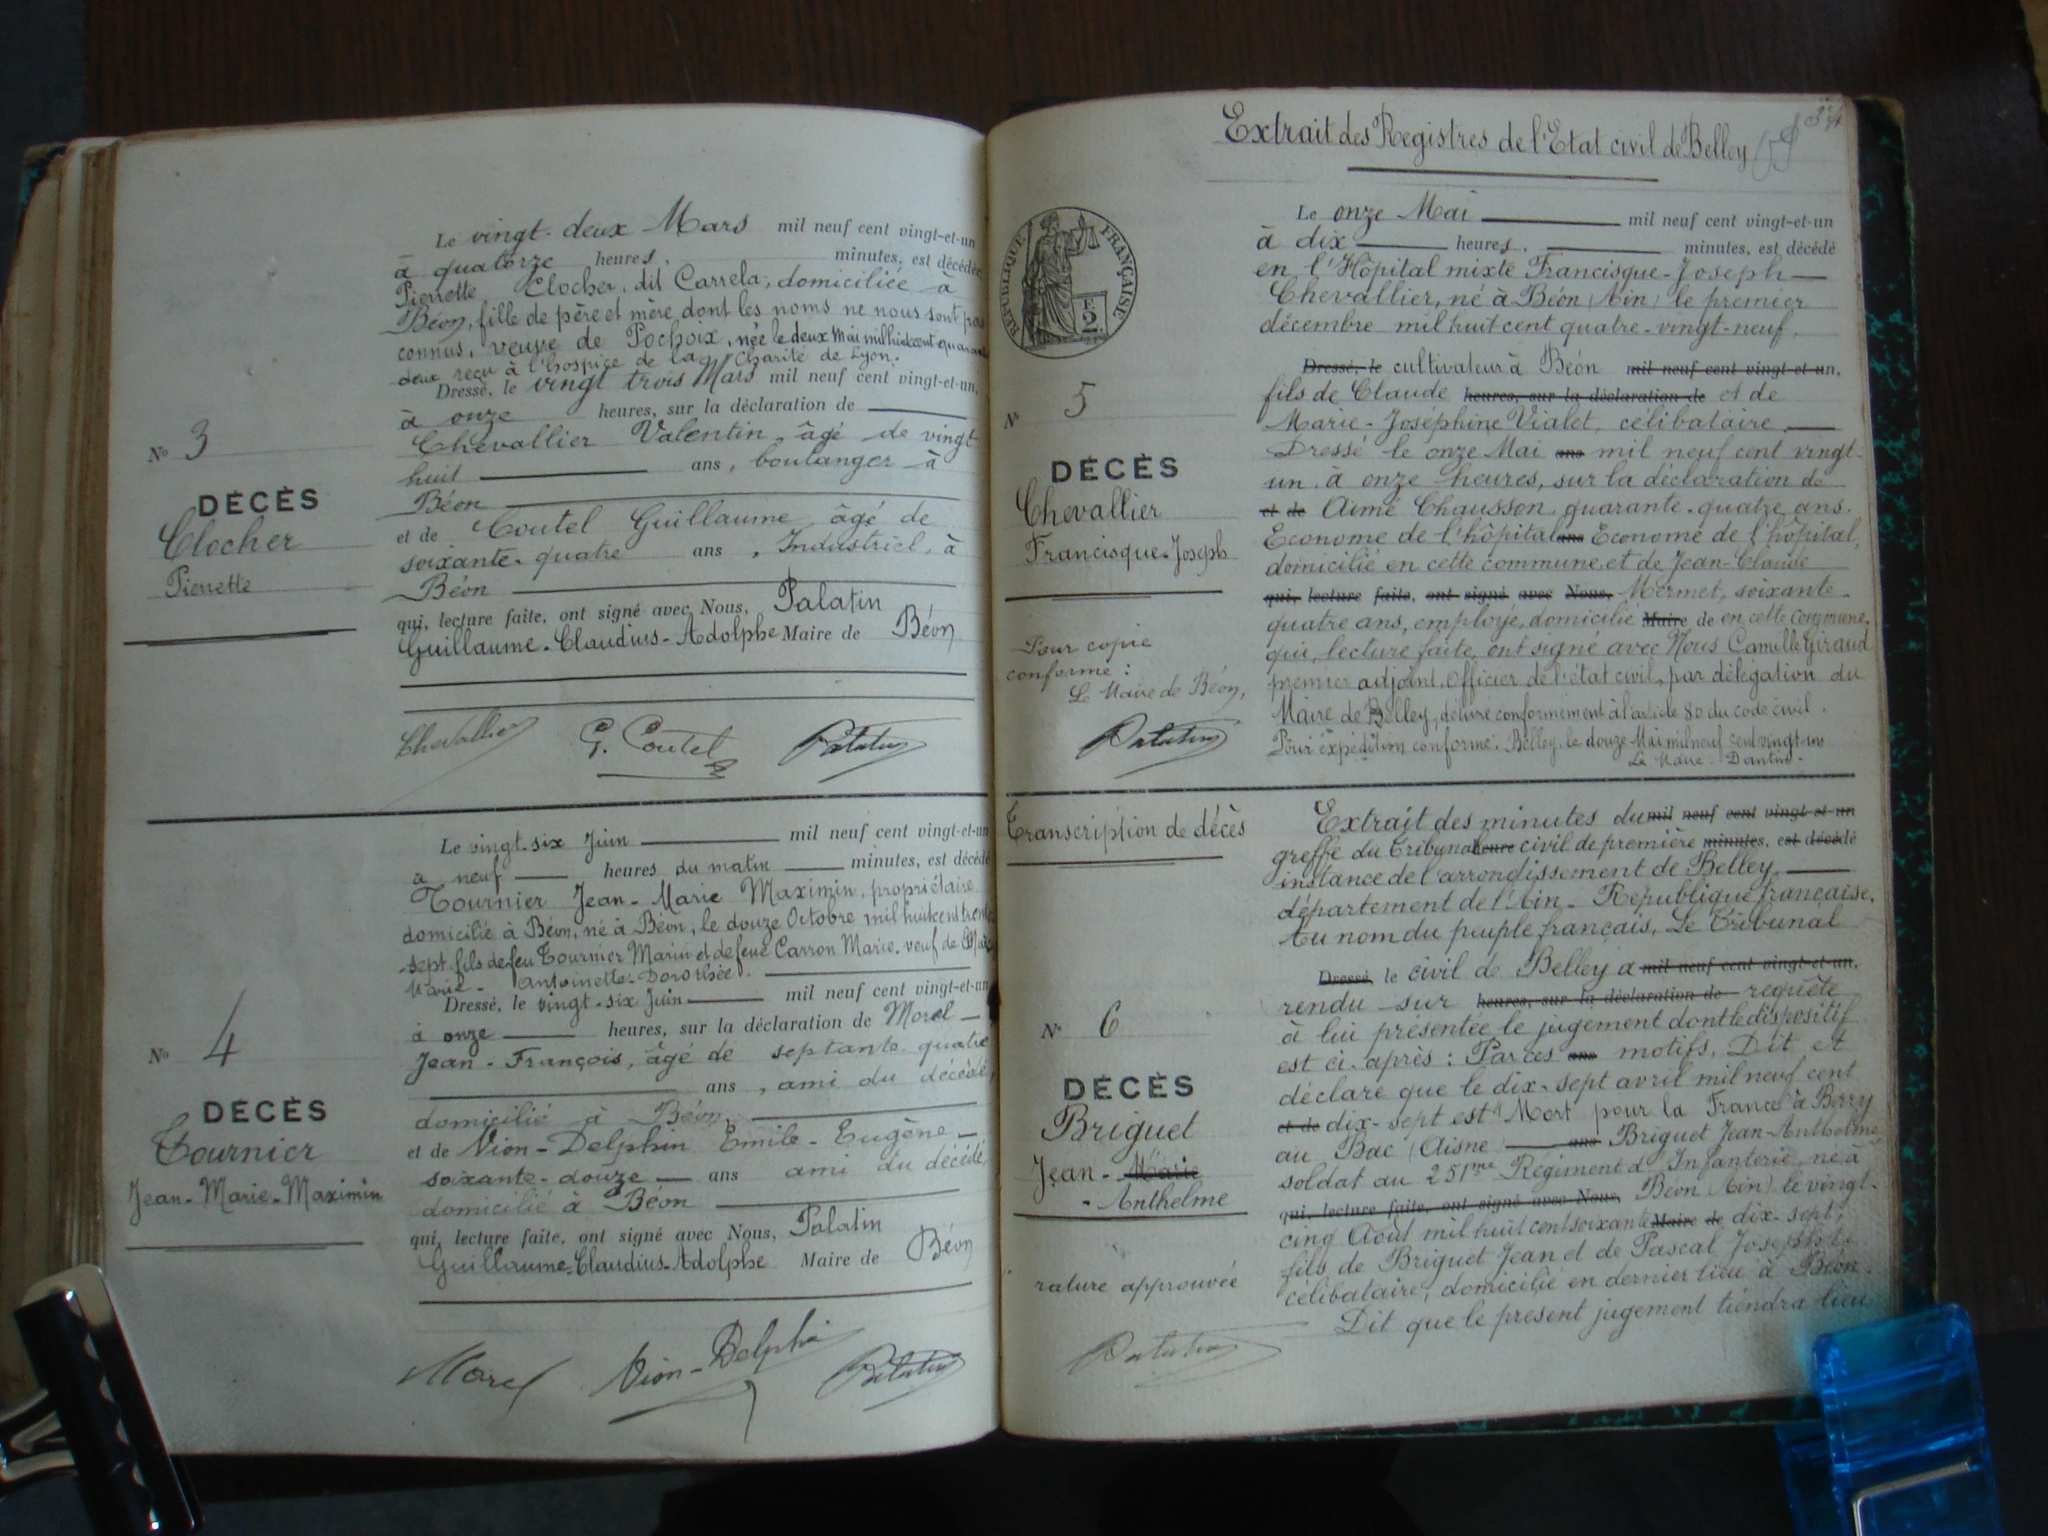 Le vingt-deux Mars mil neuf cent vingt-et-un
à quatorze heures, minutes, est décédée
Pierrette Clocher, dit Carrela, domiciliée à
Béon, fille de père et mère dont les noms ne nous sont pas
connus, veuve de Pochoix, née le deux Mai mil huit cent quarante
deux reçu à l'hospice de la Charité de Lyon.
Dressé, le vingt trois Mars mil neuf cent vingt-et-un,
à onze heures, sur la déclaration de
Chevallier Valentin, âgé de vingt
huit ans, boulanger à
Béon
et de Coutel Guillaume âgé de
soixante-quatre ans, Industriel, à
Béon
qui, lecture faite, ont signé avec Nous, Palatin
Guillaume-Claudius-Adolphe Maire de Béon
No 3
DÉCÈS
Clocher
Pierrette
Chevallier G. Coutel Palatin
Le vingt-six Juin mil neuf cent vingt-et-un
a neuf heures du matin minutes, est décédé
Tournier Jean-Marie Maximin, propriétaire
domicilié à Béon, né à Béon, le douze Octobre mil huit cent trente
sept, fils de feu Tournier Marin et de feue Carron Marie, veuf de
Marie-Antoinette-Dorothée.
Dressé, le vingt-six Juin mil neuf cent vingt-et-un
à onze heures, sur la déclaration de Morel
Jean-François, âgé de septante quatre
ans, ami du décédé,
domicilié à Béon,
et de Vion-Delphin Emile-Eugène
soixante-douze ans ami du décédé,
domicilié à Béon
qui, lecture faite, ont signé avec Nous, Palatin
Guillaume-Claudius-Adolphe Maire de Béon
No 4
DÉCÈS
Tournier
Jean-Marie-Maximin
Morel Vion-Delphin Palatin
Extrait des Registres de l'Etat civil de Belley
RÉPUBLIQUE FRANÇAISE
Le onze Mai mil neuf cent vingt-et-un
à dix heures, minutes, est décédé
en l'Hôpital mixte Francisque-Joseph
Chevallier, né à Béon (Ain) le premier
décembre mil huit cent quatre-vingt-neuf,
Dressé, le cultivateur à Béon mil neuf cent vingt-et-un,
fils de Claude heures, sur la déclaration de et de
Marie-Joséphine Vialet, célibataire,
Dressé le onze Mai ans mil neuf cent vingt-
un, à onze heures, sur la déclaration de
et de Aimé Chausson, quarante-quatre ans,
Econome de l'hôpital ans Econome de l'hôpital,
domicilié en cette commune et de Jean-Claude
qui, lecture faite, ont signé avec Nous, Mermet, soixante-
quatre ans, employé, domicilié Maire de en cette commune,
qui, lecture faite, ont signé avec Nous Camille Giraud
premier adjoint, Officier de l'état civil, par délégation du
Maire de Belley, délivré conformément à l'article 80 du code civil.
Pour expédition conforme. Belley, le douze Mai mil neuf cent vingt-un
Le Maire: Dantin.
No 5
DÉCÈS
Chevallier
Francisque-Joseph
Pour copie
conforme:
Le Maire de Béon,
Palatin
Transcription de décès
Extrait des minutes du mil neuf cent vingt-et-un
greffe du Tribunal heure civil de première minutes, est décédé
instance de l'arrondissement de Belley,
département de l'Ain - République française,
Au nom du peuple français, Le Tribunal
Dressé, le civil de Belley a mil neuf cent vingt-et-un,
rendu sur heures, sur la déclaration de requête
à lui présentée, le jugement dont le dispositif
est ci-après: Par ces ans motifs, Dit et
déclare que le dix-sept avril mil neuf cent
et de dix-sept est "Mort pour la France" à Berry
au Bac (Aisne) ans Briguet Jean-Anthelme
soldat au 251me Régiment d'Infanterie, né à
qui, lecture faite, ont signé avec Nous, Béon (Ain) le vingt-
cinq Août mil huit cent soixante Maire de dix-sept,
fils de Briguet Jean et de Pascal Josephte
célibataire, domicilié en dernier lieu à Béon.
Dit que le présent jugement tiendra lieu
No 6
DÉCÈS
Briguet
Jean-Marie
-Anthelme
rature approuvée
Palatin